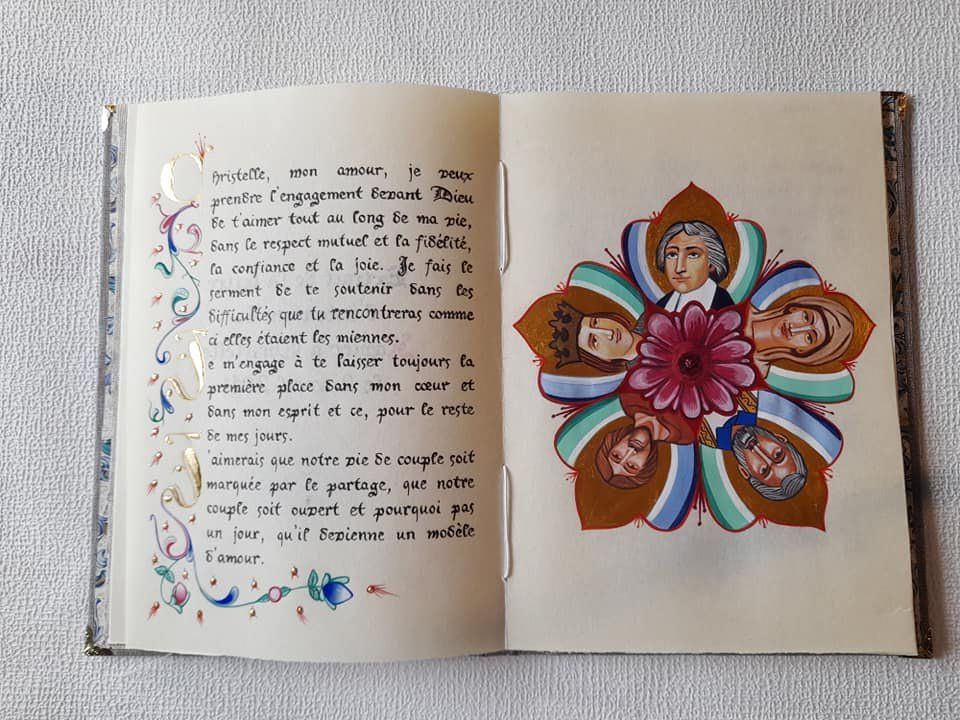 Christelle, mon amour, je veux
prendre l'engagement devant Dieu
de t'aimer tout au long de ma vie,
dans le respect mutuel et la fidélité,
la confiance et la joie. Je fais le
serment de te soutenir dans les
difficultés que tu rencontreras comme
ci elles étaient les miennes.
Je m'engage à te laisser toujours la
première place dans mon cœur et
dans mon esprit et ce, pour le reste
de mes jours.
J'aimerais que notre vie de couple soit
marquée par le partage, que notre
couple soit ouvert et pourquoi pas
un jour, qu'il devienne un modèle
d'amour.